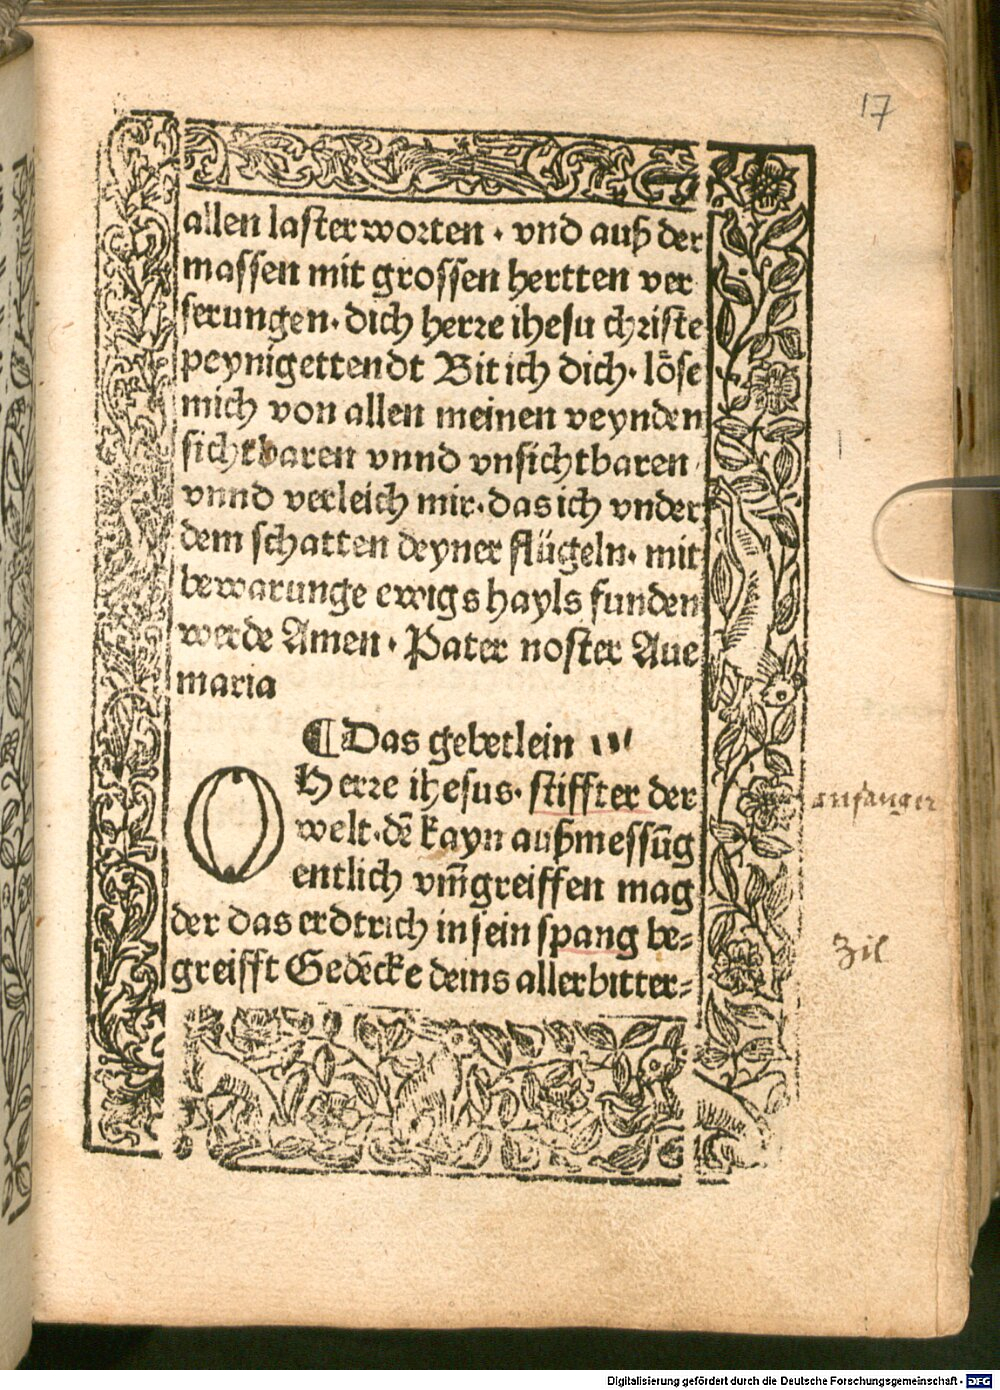 17
allen laster worten · vnd auß der
massen mit grossen hertten ver
serungen · dich herre ihesu christe
peynigettendt Bit ich dich · löse
mich von allen meinen veynden
sichtbaren vnnd vnsichtbaren
vnnd verleich mir · das ich vnder
dem schatten deyner flügeln · mit
bewarunge ewigs hayls funden
werde Amen · Pater noster Aue
maria
¶ Das gebetlein iij
O Herre ihesus · stiffter der
welt · dē kayn außmessūg
entlich vm̄greiffen mag
der das erdtrich in sein spang be⸗
greifft Gedēcke deins allerbitter⸗
anfanger
Zil
Digitalisierung gefördert durch die Deutsche Forschungsgemeinschaft - DFG